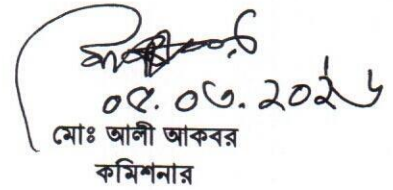 ০৫.০৩.২০২৬
মোঃ আলী আকবর
কমিশনার